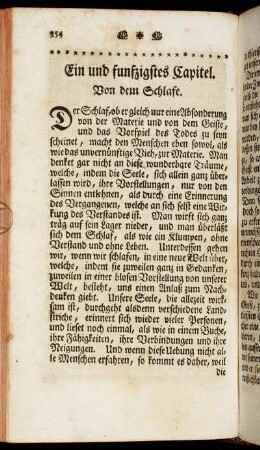 354
Ein und funfzigstes Capitel.
Von dem Schlafe.
Der Schlaf, ob er gleich nur eine Absonderung
von der Materie und von dem Geiste,
und das Vorspiel des Todes zu seyn
scheinet, macht den Menschen eben sowol, als
wie das unvernünftige Vieh, zur Materie. Man
denket gar nicht an diese wunderbare Träume,
welche, indem die Seele, sich allein ganz über-
lassen wird, ihre Vorstellungen, nur von den
Sinnen entlehnen, als durch eine Erinnerung
des Vergangenen, welche an sich selst eine Wir-
kung des Verstandes ist. Man wirft sich ganz
träg auf sein Lager nieder, und man überläßt
sich dem Schlaf, als wie ein Klumpen, ohne
Verstand und ohne Leben. Unterdessen gehen
wir, wenn wir schlafen, in eine neue Welt über,
welche, indem sie zuweilen ganz in Gedanken,
zuweilen in einer blosen Vorstellung von unserer
Welt, besteht, uns einen Anlaß zum Nach-
denken giebt. Unsere Seele, die allezeit wirk-
sam ist, durchgeht alsdenn verschiedene Land-
striche, erinnert sich wieder vieler Personen,
und lieset noch einmal, als wie in einem Buche,
ihre Fähigkeiten, ihre Verbindungen und ihre
Neigungen. Und wenn diese Uebung nicht al-
le Menschen erfahren, so kommt es daher, weil
die